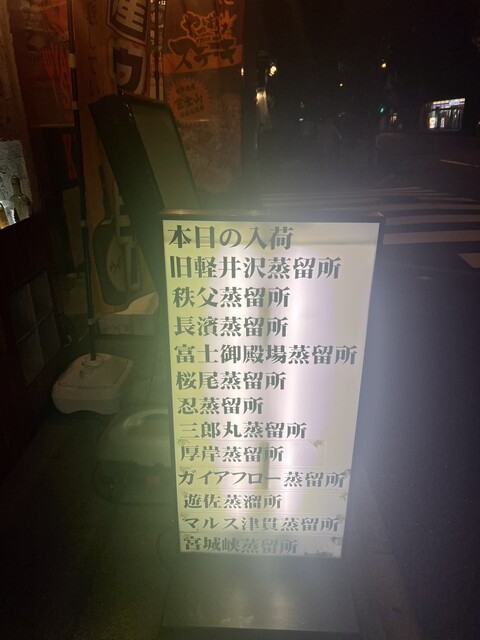 ステーキ
本日の入荷
旧軽井沢蒸留所
秩父蒸留所
長濱蒸留所
富士御殿場蒸留所
桜尾蒸留所
忍蒸留所
三郎丸蒸留所
厚岸蒸留所
ガイアフロー蒸留所
遊佐蒸溜所
マルス津貫蒸留所
宮城峡蒸留所